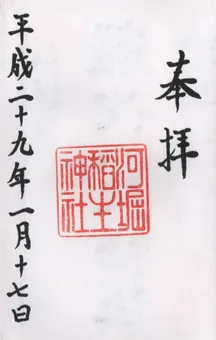 奉拝
河堀
稲生
神社
平成二十九年一月十七日